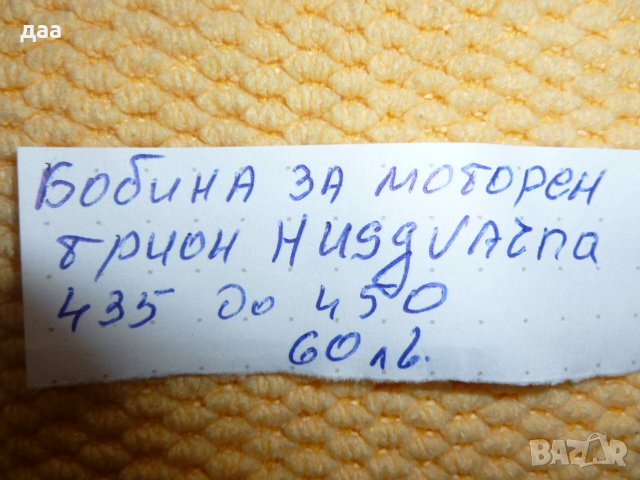 даа
Бобина за моторен
трион Husgvarna
435 до 450
60 лв.
BAZAR